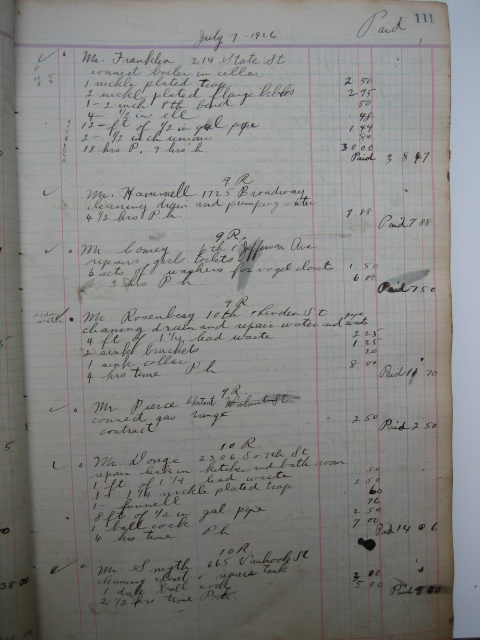 111
Paid
July 7 - 1926
Mr. Franklin 214 State St
conned boiler in cellar
1 nickle plated trap 2 50
2 nickl plated flange bibbs 2-75
1 - 2 inch 8th bend 50
4 - 1/2 in ell 48
12 - ft of 1/2 in gal pipe 1 44
2 - 1/2 inch unions 80
18 hrs P. 9 hrs h. 30 00
Paid 38 47
9 R
Mr. Hammell 1725 Broadway
cleaning drain and pumping water
4 1/2 hrs P h. 7 88
Paid 7 88
9 R.
Mr. Comey 6th & Jefferson Ave
repairs girls toilets
6 sets of washers for vogel closet 1 50
3 hrs P h 6 00
Paid 7 50
9 R
Mr. Rosenberg 10th & Linden St
cleaning drain and repair water and waste pipe
4 ft of 1 1/4 lead waste 2 25
2 sink brackets 1 25
1 sink collar 20
4 hrs time P h 8 00
Paid 11 70
9 R
Mr Pierce
connect gas range
contract 2 50
Paid 2 50
10 R
Mr. Donge 2306 So 7th St
repair leak in kitchen and bath room
1 ft of 1 1/4 lead waste 50
1 - 1 1/4 nickle plated trap 2 50
1 - funnell 60
8 ft of 1/2 in gal pipe 96
1 ball cock 2 50
4 hrs time P h 7 00
Paid 14 06
10 R
Mr Smyth 665 Vanhook St
cleaning closet & repairs tank
1 ball cock 3 00
2 1/2 hrs time P h. 5 00
Paid 8 00
38 00
5